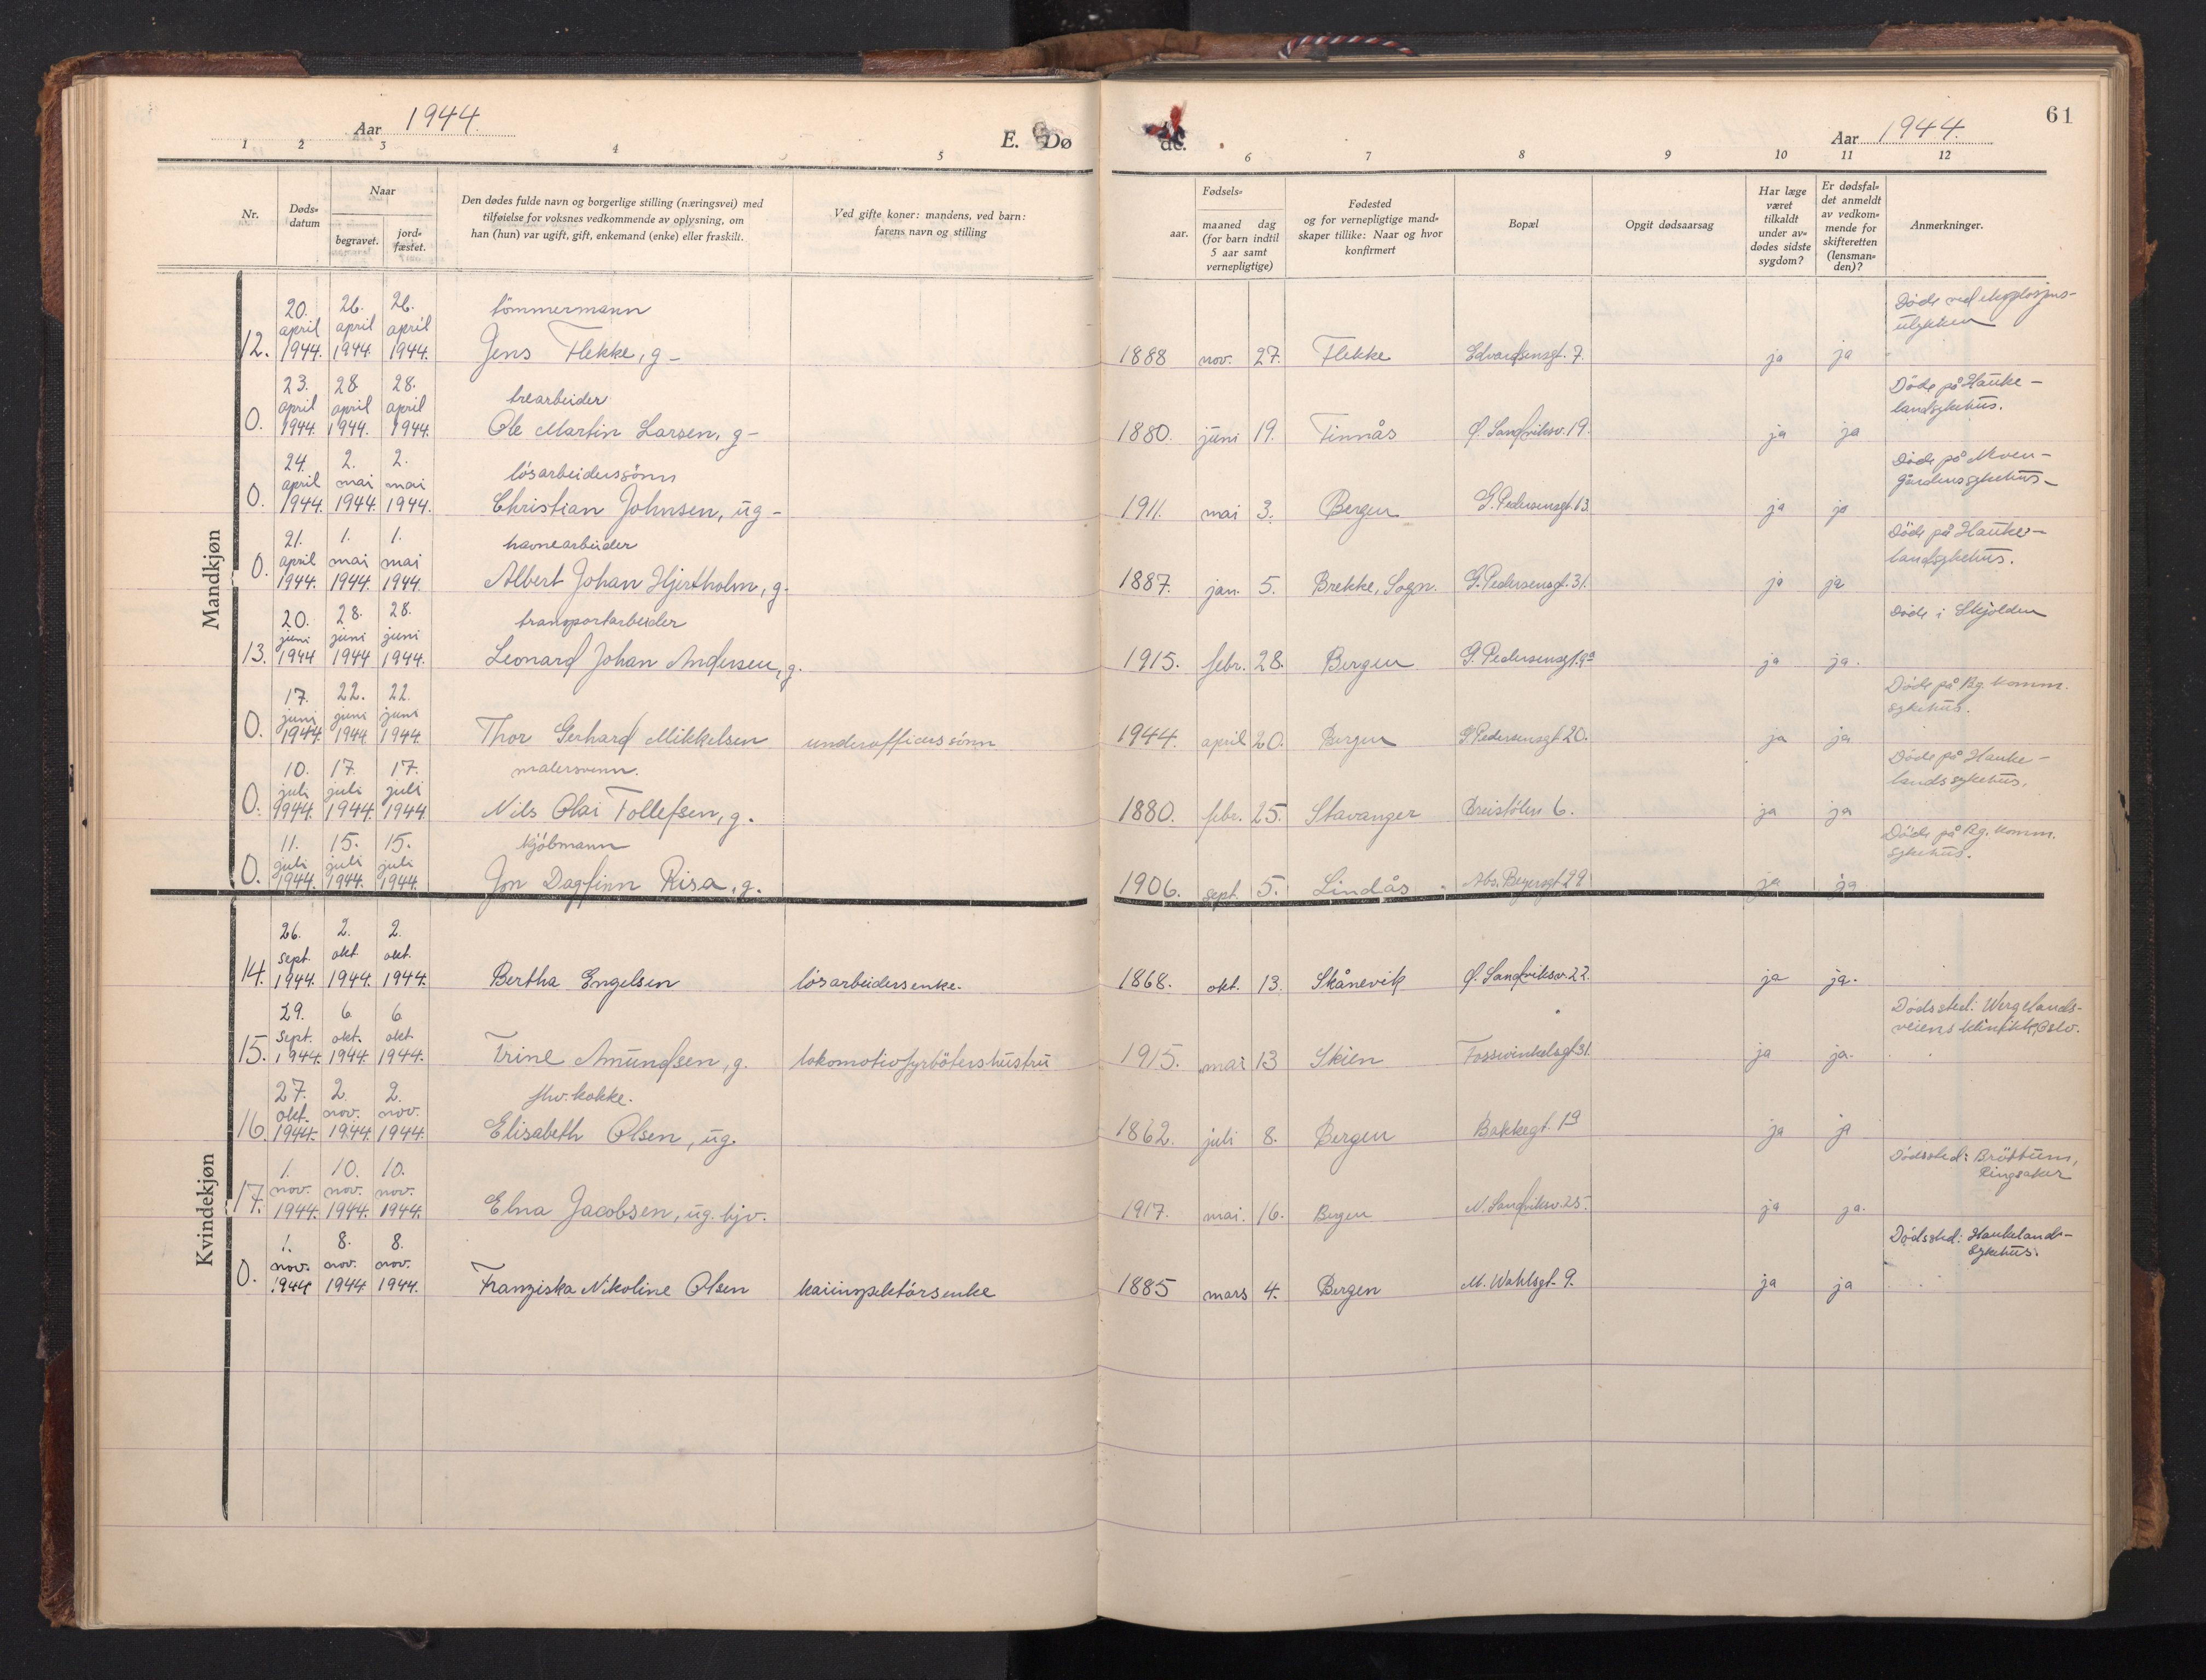 61
Aar 1944.
E. Dø
de.
Aar 1944.
1 2 3 4 5 6 7 8 9 10 11 12
Nr.
Døds-
datum
Naar
begravet.
jord-
fæstet.
Den dødes fulde navn og borgerlige stilling (næringsvei) med
tilføielse for voksnes vedkommende av oplysning, om
han (hun) var ugift, gift, enkemand (enke) eller fraskilt.
Ved gifte koner: mandens, ved barn:
farens navn og stilling
Fødsels-
aar.
maaned dag
(for barn indtil
5 aar samt
vernepligtige)
Fødested
og for vernepligtige mand-
skaper tillike: Naar og hvor
konfirmert
Bopæl
Opgit dødsaarsag
Har læge
været
tilkaldt
under av-
dødes sidste
sygdom?
Er dødsfal-
det anmeldt
av vedkom-
mende for
skifteretten
(lensman-
den)?
Anmerkninger.
Mandkjøn
20. 26. 26. tømmermann Døde ved eksplosjons-
april april april ulykken
12. 1944. 1944. 1944. Jens Flekke, g- 1888 nov. 27. Flekke Edvardsensgt. 7. ja ja
23. 28. 28. trearbeider Døde på Hauke-
april april april landsykehus.
0. 1944. 1944. 1944. Ole Martin Larsen, g- 1880. juni 19. Finnås Ø. Sandviksv. 19. ja ja
24. 2. 2. løsarbeiderssønn Døde på
april mai mai
0. 1944. 1944. 1944. Christian Johnsen, ug- 1911. mai 3. Bergen G. Pedersensgt. 13. ja ja
21. 1. 1. havnearbeider Døde på Hauke-
april mai mai landsykehus.
0. 1944. 1944. 1944. Albert Johan Hjertholm, g. 1887. jan. 5. Brekke, Sogn. G. Pedersensgt. 31. ja ja
20. 28. 28. transportarbeider Døde i Skjolden
juni juni juni
13. 1944 1944 1944. Leonard Johan Andersen, g. 1915. febr. 28. Bergen G. Pedersensgt. 9a ja ja.
17. 22. 22. Døde på Bg. komm.
juni juni juni sykehus.
0. 1944. 1944 1944. Thor Gerhard Mikkelsen underofficerssønn 1944. april 20. Bergen G. Pedersensgt. 20. ja ja
10. 17. 17. malersvenn. Døde på Hauke-
juli juli juli landssykehus.
0. 1944. 1944. 1944 Nils Olai Tollefsen, g. 1880. febr. 25. Stavanger Breistølen 6. ja ja
11. 15. 15. kjøbmann Døde på Bg. komm.
juli juli juli sykehus.
0. 1944. 1944. 1944. Jon Dagfinn Risa, g. 1906. sept. 5. Lindås Abs. Beyersgt. 29 ja ja
Kvindekjøn
26. 2. 2.
sept. okt. okt.
14. 1944. 1944. 1944. Bertha Engelsen løsarbeidersenke. 1868. okt. 13. Skånevik Ø. Sandviksv. 22. ja ja.
29. 6 6 Dødssted: Wergelands-
sept. okt. okt veiens klinikk, Oslo.
15. 1944. 1944. 1944. Trine Amundsen, g. lokomotivfyrbøtershustru 1915. mai 13 Skien Fosswinkelsgt. 31. ja ja.
27. 2. 2. fhv. kokke.
okt. nov. nov.
16. 1944. 1944. 1944. Elisabeth Olsen, ug. 1862. juli 8. Bergen Bakkegt. 19 ja ja
1. 10. 10. Dødssted: Brøttum,
nov. nov. nov. Ringsaker
17. 1944. 1944. 1944. Elna Jacobsen, ug. hjv. 1917. mai. 16. Bergen N. Sandviksv. 25. ja ja.
1. 8. 8. Dødssted: Haukelands-
nov. nov. nov. sykehus.
0. 1944 1944. 1944. Franziska Nikoline Olsen kaiinspektørsenke 1885 mars 4. Bergen M. Wahlsgt. 9. ja ja